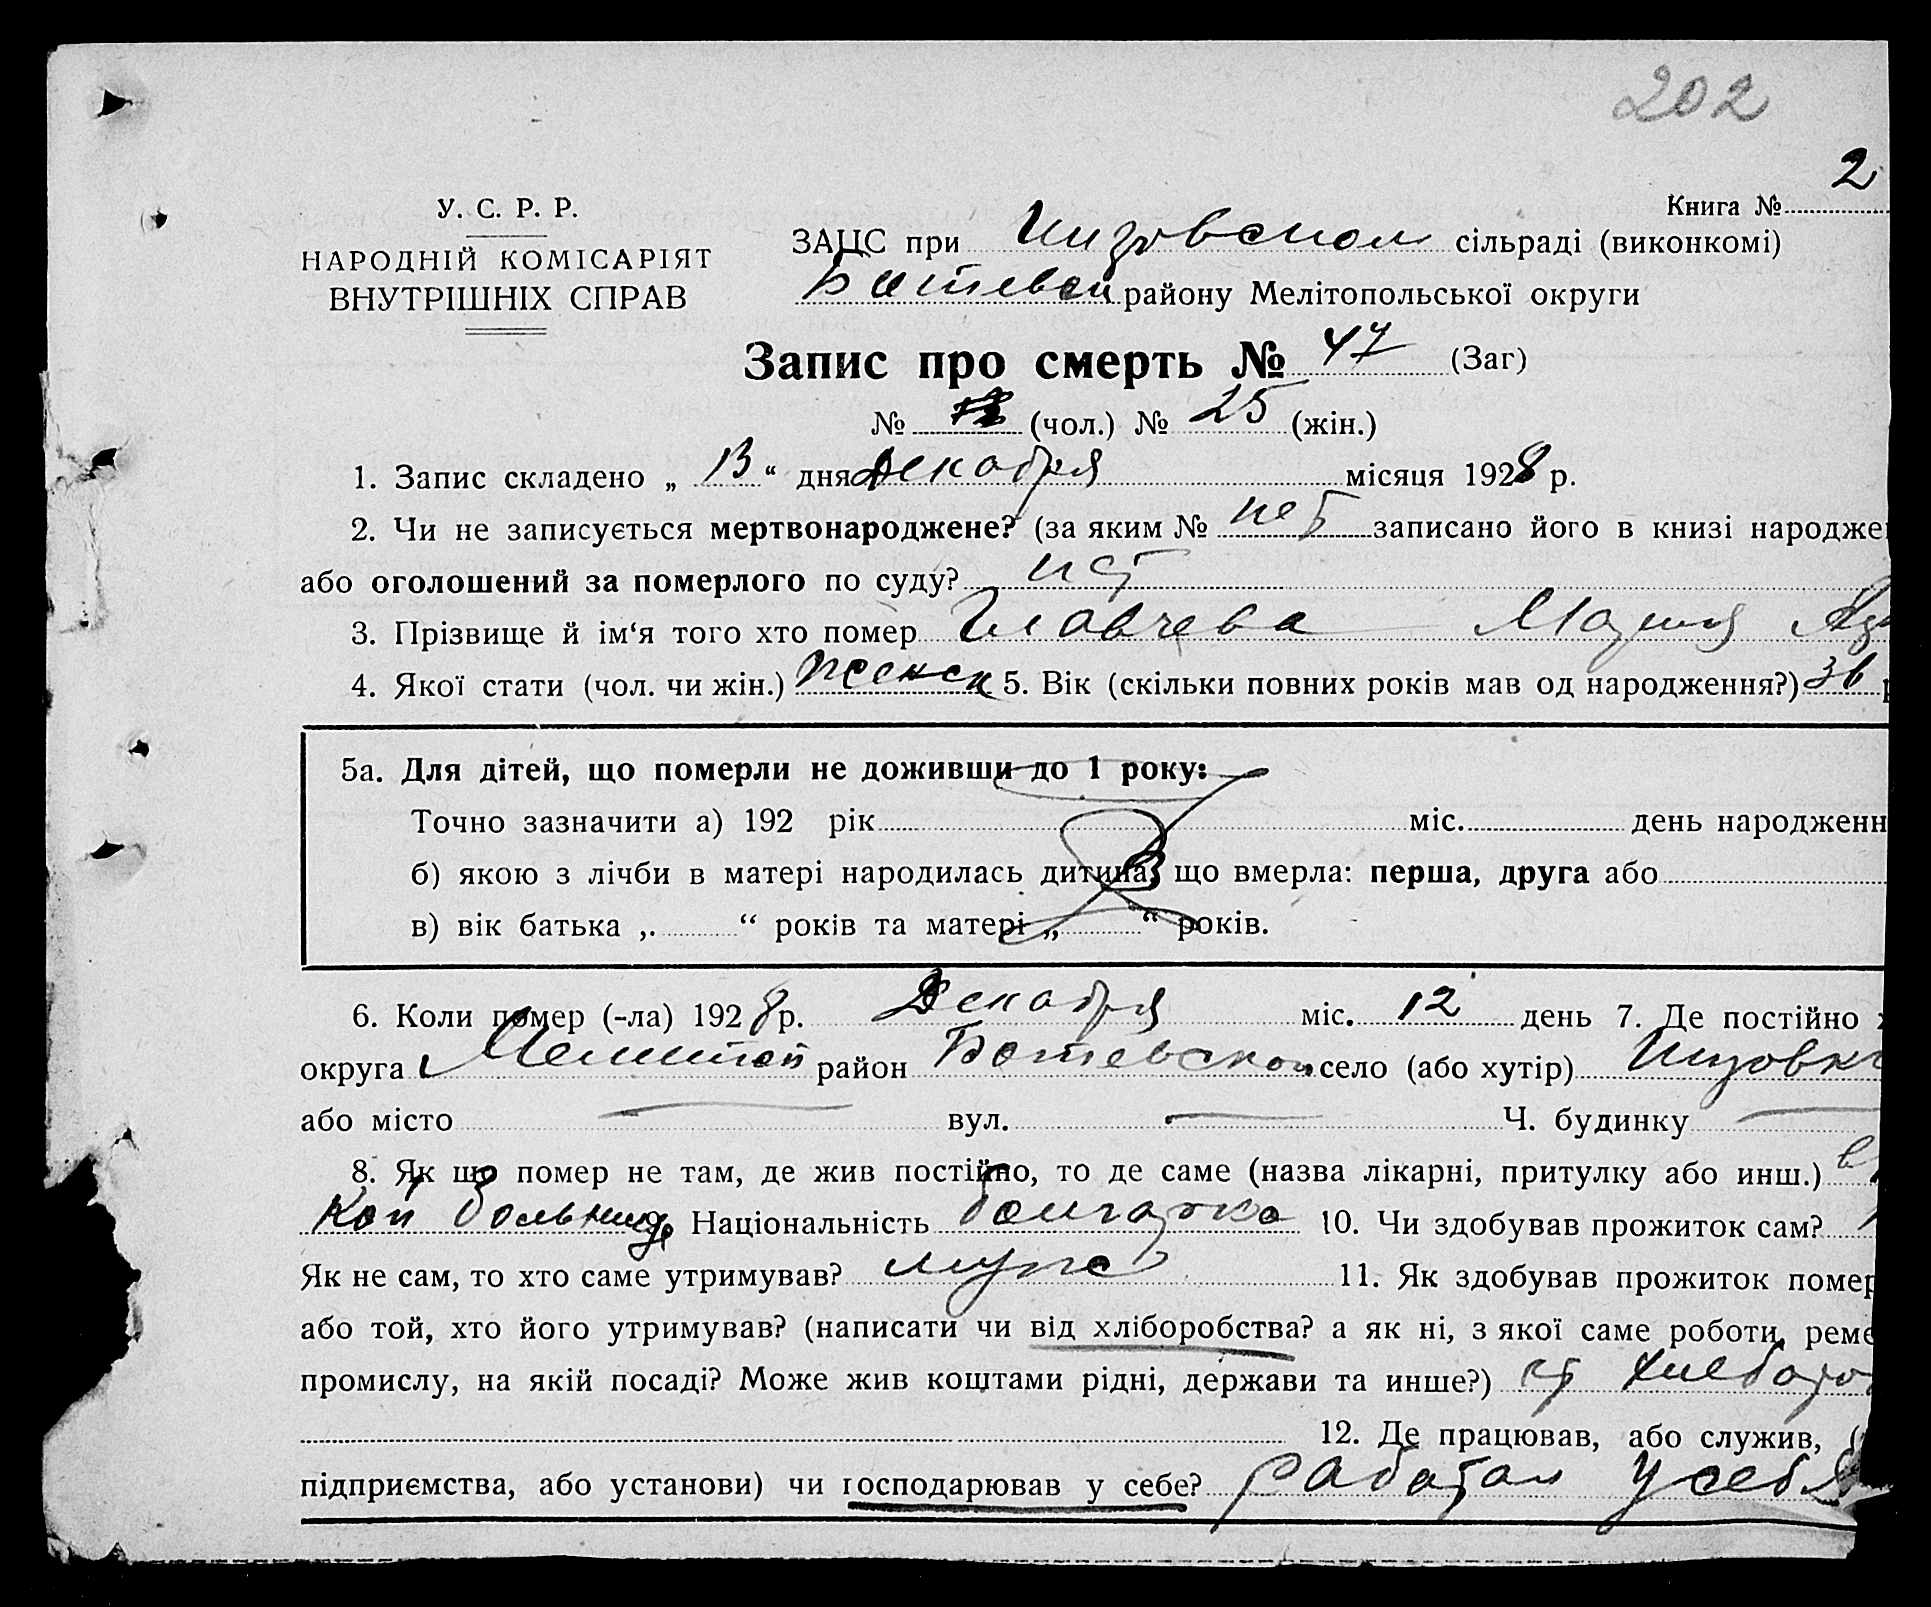 202
Книга № 2
У. С. Р. Р.
НАРОДНІЙ КОМІСАРІЯТ
ВНУТРІШНІХ СПРАВ
ЗАЦС при сільраді (виконкомі)
району Мелітопольської округи
Запис про смерть № 47 (Заг)
№ (чол.) № 25 (жін.)
1. Запис складено „ 13 “ дня Декабря місяця 1928 р.
2. Чи не записується мертвонароджене? (за яким № нет записано його в книзі народже
або оголошений за померлого по суду? нет
3. Прізвище й ім‘я того хто помер Главчева Мария
4. Якої стати (чол. чи жін.) женск 5. Вік (скільки повних років мав од народження?)
5а. Для дітей, що померли не доживши до 1 року:
Точно зазначити а) 192 рік міс. день народженн
б) якою з лічби в матері народилась дитина, що вмерла: перша, друга або
в) вік батька „ “ років та матері „ “ років.
6. Коли помер (-ла) 1928 р. Декабря міс. 12 день 7. Де постійно
округа Мелитоп район Ботевском село (або хутір)
або місто — вул. — Ч. будинку —
8. Як що помер не там, де жив постійно, то де саме (назва лікарні, притулку або инш.) в
кой больнице 9. Національність болгарка 10. Чи здобував прожиток сам?
Як не сам, то хто саме утримував? муж 11. Як здобував прожиток помер
або той, хто його утримував? (написати чи від хліборобства? а як ні, з якої саме роботи, реме
промислу, на якій посаді? Може жив коштами рідні, держави та инше?) от хлебаро
12. Де працював, або служив, (
підприємства, або установи) чи господарював у себе? работал у себя